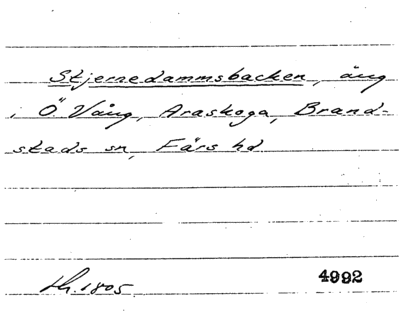 Stjernedammsbacken, äng
i Ö. Vång, Araskoga, Brand-
stads sn, Färs hd
1805 4992